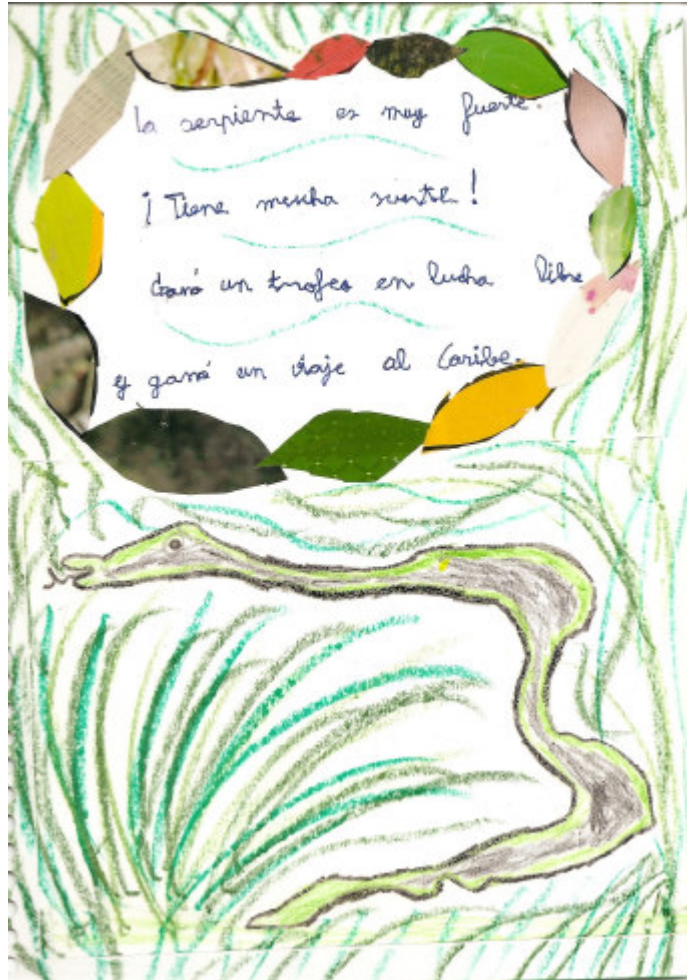 La serpiente es muy fuerte.
¡Tiene mucha suerte!
Ganó un trofeo en lucha libre
y ganó un viaje al Caribe.